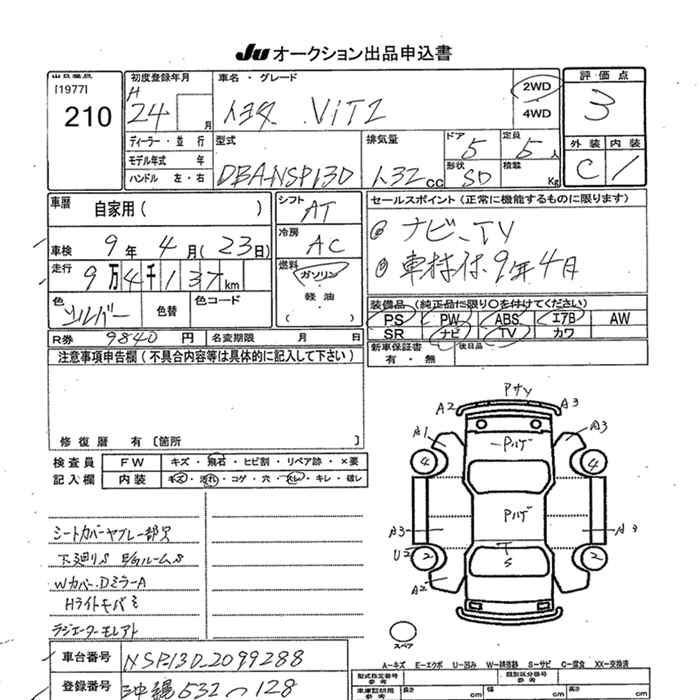 Ju オークション出品申込書
出品番号
[1977]
210
初度登録年月
H
24 月
車名・グレード
トヨタ ViTZ
2WD
4WD
評価点
3
ディーラー・並行
モデル年式 年
ハンドル 左・右
型式
DBA-NSP130
排気量
1.32 cc
ドア
5
定員
5 人
形状
SD
積載
Kg
外装 内装
C 1
車歴
自家用( )
シフト
AT
セールスポイント (正常に機能するものに限ります)
ナビ、TV
車検付、9年4月
車検
9年4月(23日)
冷房
AC
走行
9万4千137km
燃料
ガソリン
軽油
( )
色
シルバー
色替
色コード
装備品 (純正品に限り○を付けてください)
PS PW ABS エアB AW
SR ナビ TV カワ
R券 9840 円
名変期限 月 日
新車保証書
有・無
後日品
注意事項申告欄(不具合内容等は具体的に記入して下さい)
修復歴 有[箇所 ]
検査員 FW キズ・飛石・ヒビ割・リペア跡・×要
記入欄 内装 キズ・汚れ・コゲ・穴・スレ・キレ・破レ
シートカバーヤブレ一部穴
下廻りS E/GルームS
Wカバー、DミラーA
Hライトキバミ
ラジエーターモレアト
PサV
A2
A3
A1
A3
Pハゲ
4
4
Pハゲ
A3
U2
2
2
A2
S
スペア
車台番号 NSP130-2099288
登録番号 沖縄532つ128
A―キズ E―エクボ U―凹み W―補修跡 S―サビ C―腐食 XX―交換済
型式指定番号
参考
類別区分番号
参考
車庫証明用
参考
長さ cm
幅 cm
高さ cm